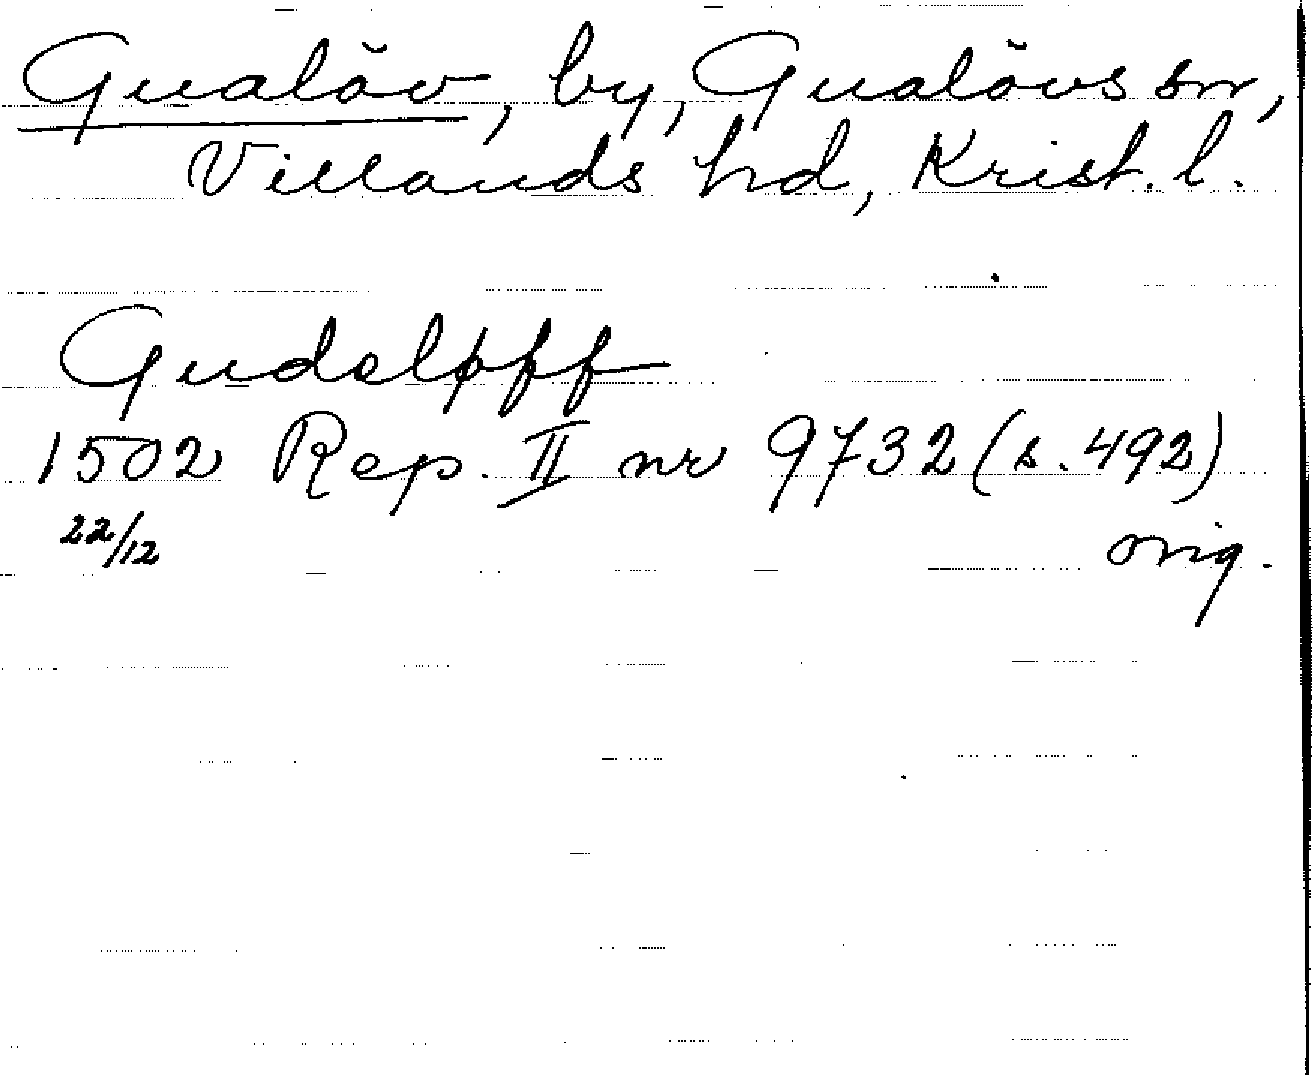 Gualöv, by, Gualövs sn,
Villands hd, Krist. l.
Gudeløff
1502 Rep. II nr 9732 (s. 492)
22/12 orig.